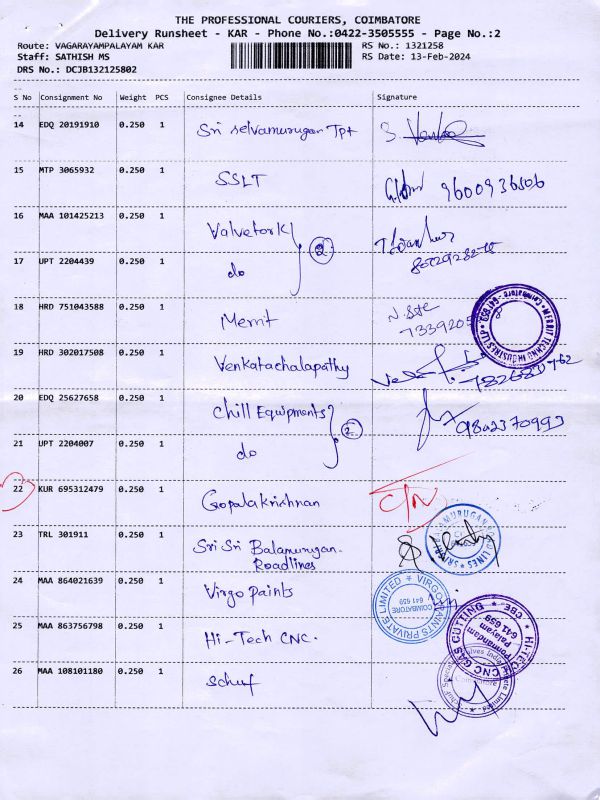 THE PROFESSIONAL COURIERS, COIMBATORE
Delivery Runsheet - KAR - Phone No.:0422-3505555 - Page No.:2
Route: VAGARAYAMPALAYAM KAR RS No.: 1321258
Staff: SATHISH MS RS Date: 13-Feb-2024
DRS No.: DCJB132125802
S No Consignment No Weight PCS Consignee Details Signature
14 EDQ 20191910 0.250 1 Sri Selvamurugan Tpt
15 MTP 3065932 0.250 1 SSLT 9600936506
16 MAA 101425213 0.250 1 Valvetork
17 UPT 2204439 0.250 1 do 2
18 HRD 751043588 0.250 1 Merrit 7339205
MERRIT TECHNO INDUSTRES LLP Coimbatore
19 HRD 302017508 0.250 1 Venkatachalapathy
20 EDQ 25627658 0.250 1 Chill Equipments 9802370993
21 UPT 2204007 0.250 1 do 2
22 KUR 695312479 0.250 1 Gopalakrishnan C/N
23 TRL 301911 0.250 1 Sri Sri Balamurugan Roadlines
24 MAA 864021639 0.250 1 Virgo Paints
VIRGO PAINTS PRIVATE LIMITED COIMBATORE 641 659
25 MAA 863756798 0.250 1 Hi-Tech CNC.
HI-TECH CNC GAS CUTTING CBE Ponnandam Palayam 641 659
26 MAA 108101180 0.250 1 Schuf